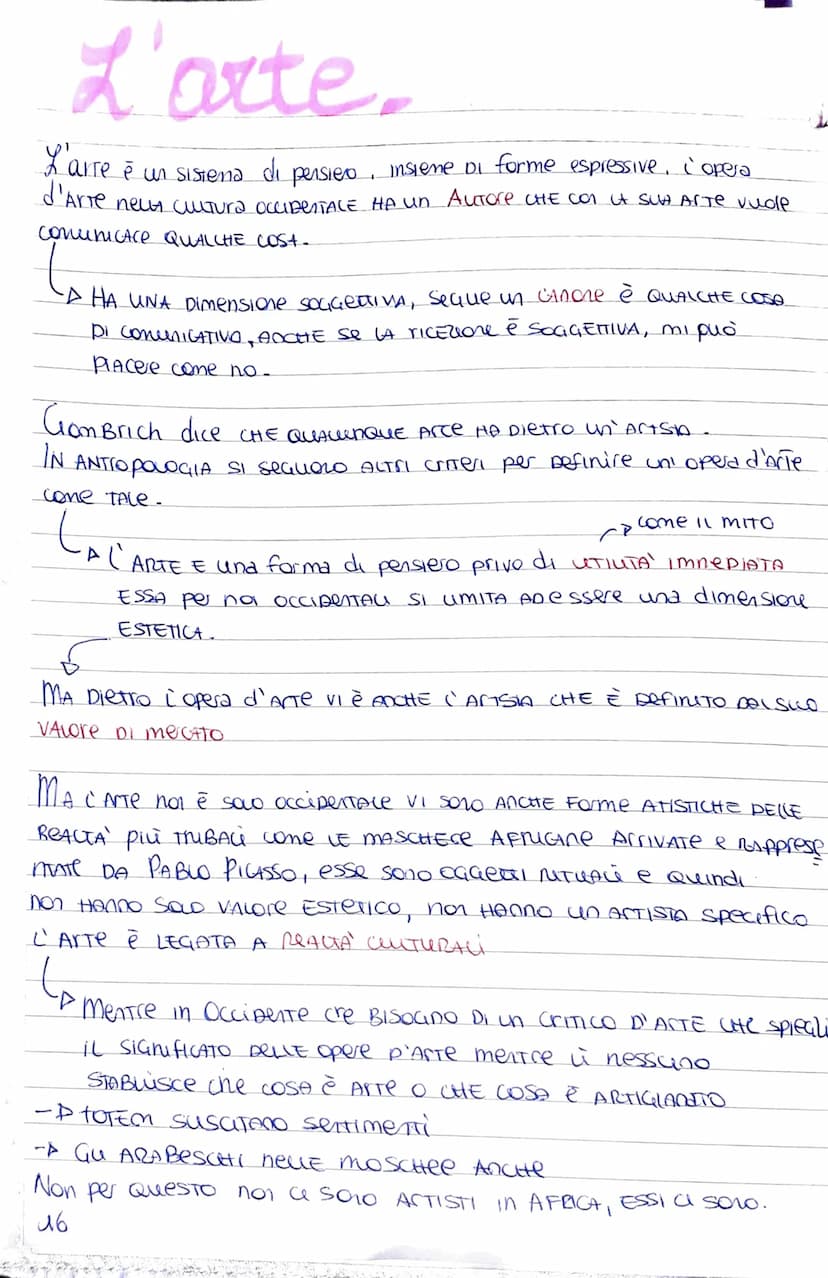 L'arte.
L'arte è un sistema di pensiero, insieme di forme espressive. L'opera
d'Arte nella cultura occidentale ha un Autore che con la sua arte vuole
comunicare qualche cosa.
Ha una dimensione soggettiva, segue un canone è qualche cosa
di comunicativo, anche se la ricezione è soggettiva, mi può
piacere come no.
Gombrich dice che qualunque arte ha dietro un'artista.
In antropologia si seguono altri criteri per definire un'opera d'arte
come tale.
come il mito
L'arte è una forma di pensiero privo di utilità immediata
essa per noi occidentali si limita ad essere una dimensione
estetica.
Ma dietro l'opera d'arte vi è anche l'artista che è definito dal suo
valore di mercato
Ma l'arte non è solo occidentale vi sono anche forme atistiche delle
realtà più tribali come le maschere africane arrivate e rapprese
ntate da Pablo Picasso, esse sono oggetti rituali e quindi
non hanno solo valore estetico, non hanno un artista specifico
L'arte è legata a realtà culturali
Mentre in Occidente c're bisogno di un critico d'arte che spieghi
il significato delle opere d'arte mentre lì nessuno
stabilisce che cosa è arte o che cosa è artigianato
totem suscitano sentimenti
Gli arabeschi nelle moschee anche
Non per questo non ci sono artisti in Africa, essi ci sono.
16